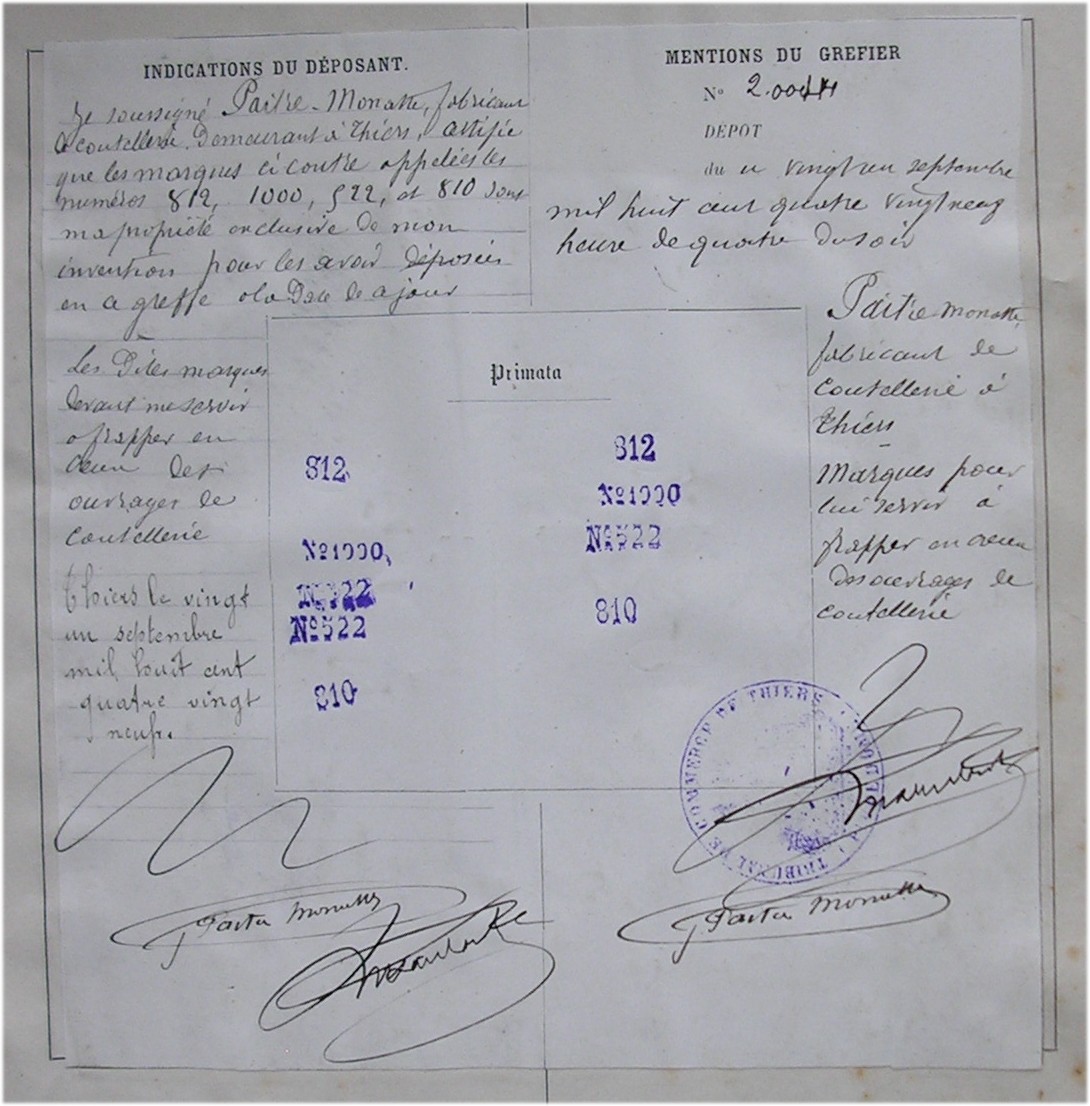 INDICATIONS DU DÉPOSANT.
Je soussigné Paitre-Monatte, fabricant
de coutellerie, Demeurant à Thiers, certifie
que les marques ci contre appelées les
numéros 812, 1000, 522, et 810 sont
ma propriété exclusive de mon
invention pour les avoir déposées
en ce greffe a la Date de ce jour
Les Dites marques
devant me servir
a frapper en
creux des
ouvrages de
coutellerie
Thiers le vingt
un septembre
mil huit cent
quatre vingt
neuf.
MENTIONS DU GREFIER
N° 2.004
DÉPOT
du vingt un septembre
mil huit cent quatre vingt neuf
heure de quatre du soir
Paitre Monatte,
fabricant de
coutellerie à
Thiers
Marques pour
lui servir à
frapper en creux
des ouvrages de
coutellerie
Primata
812
812
No 1000
No 1000,
No 522
No 522
No 522
810
810
TRIBUNAL DE COMMERCE DE THIERS
Paitre Monatte
Paitre Monatte